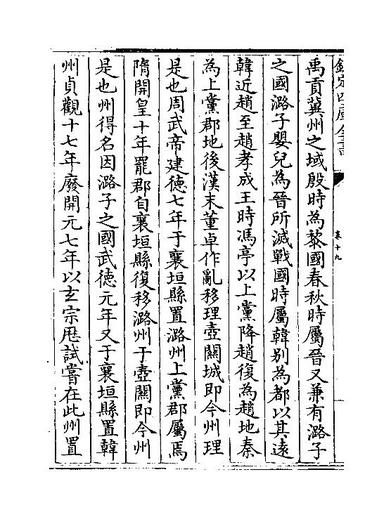 欽定四庫全書
卷十九
禹貢冀州之域殷時為黎國春秋時屬晉又兼有潞子
之國潞子嬰兒為晉所滅戰國時屬韓别為都以其遠
韓近趙至趙孝成王時馮亭以上黨降趙後為趙地秦
為上黨郡地後漢末董卓作亂移理壺關城即今州理
是也周武帝建德七年于襄垣縣置潞州上黨郡屬焉
隋開皇十年罷郡自襄垣縣復移潞州于壺關即今州
是也州得名因潞子之國武德元年又于襄垣縣置韓
州貞觀十七年廢開元七年以玄宗歴試嘗在此州置